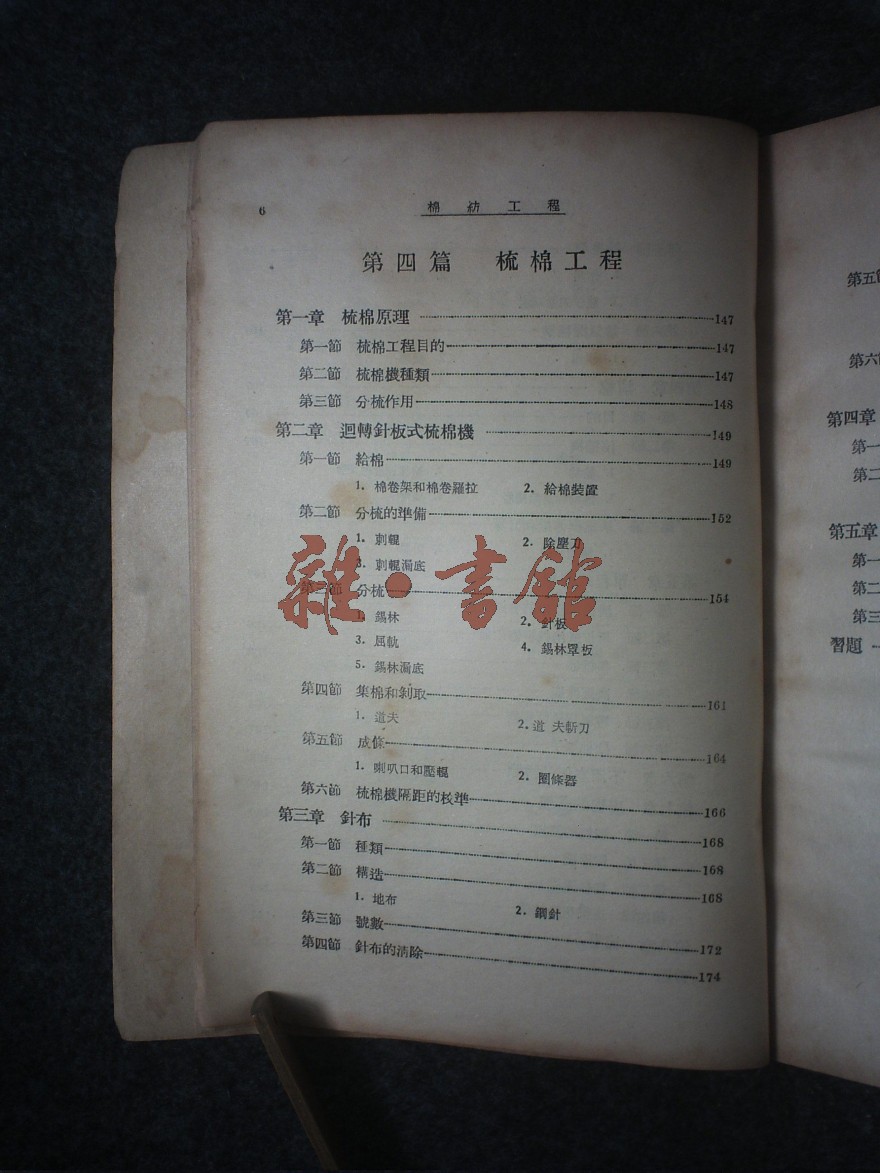 6 棉紡工程
第四篇 梳棉工程
第一章 梳棉原理 147
第一節 梳棉工程目的 147
第二節 梳棉機種類 147
第三節 分梳作用 148
第二章 迴轉針板式梳棉機 149
第一節 給棉 149
1. 棉卷架和棉卷羅拉 2. 給棉裝置
第二節 分梳的準備 152
1. 刺輥 2. 除塵刀
3. 刺輥漏底
第三節 分梳 154
1. 錫林 2. 針板
3. 屈軌 4. 錫林罩板
5. 錫林漏底
第四節 集棉和剝取 161
1. 道夫 2. 道夫斬刀
第五節 成條 164
1. 喇叭口和壓輥 2. 圈條器
第六節 梳棉機隔距的校準 166
第三章 針布 168
第一節 種類 168
第二節 構造 168
1. 地布 2. 鋼針
第三節 號數 172
第四節 針布的清除 174
雜·書館
第五節
第六節
第四章
第一
第二
第五章
第一
第二
第三
習題